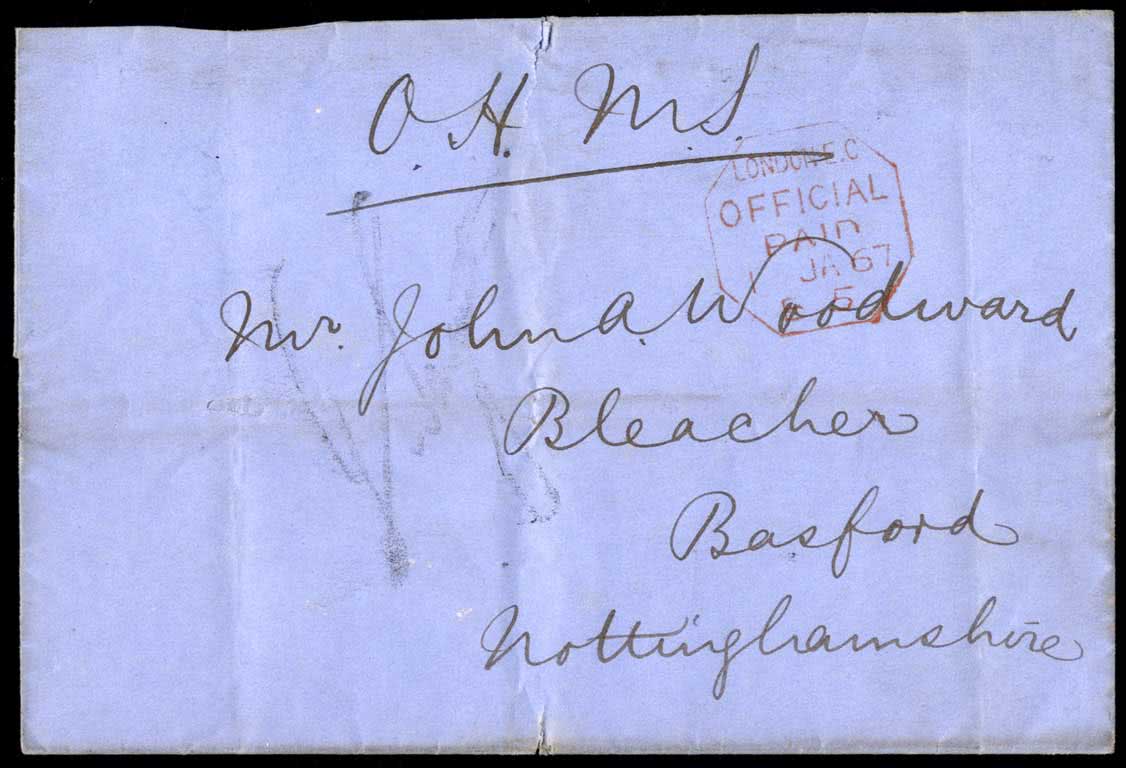 O.H.M.S.
LONDON.E.C
OFFICIAL
PAID
JA 67
5
Mr. John A. Woodward
Bleacher
Basford
Nottinghamshire